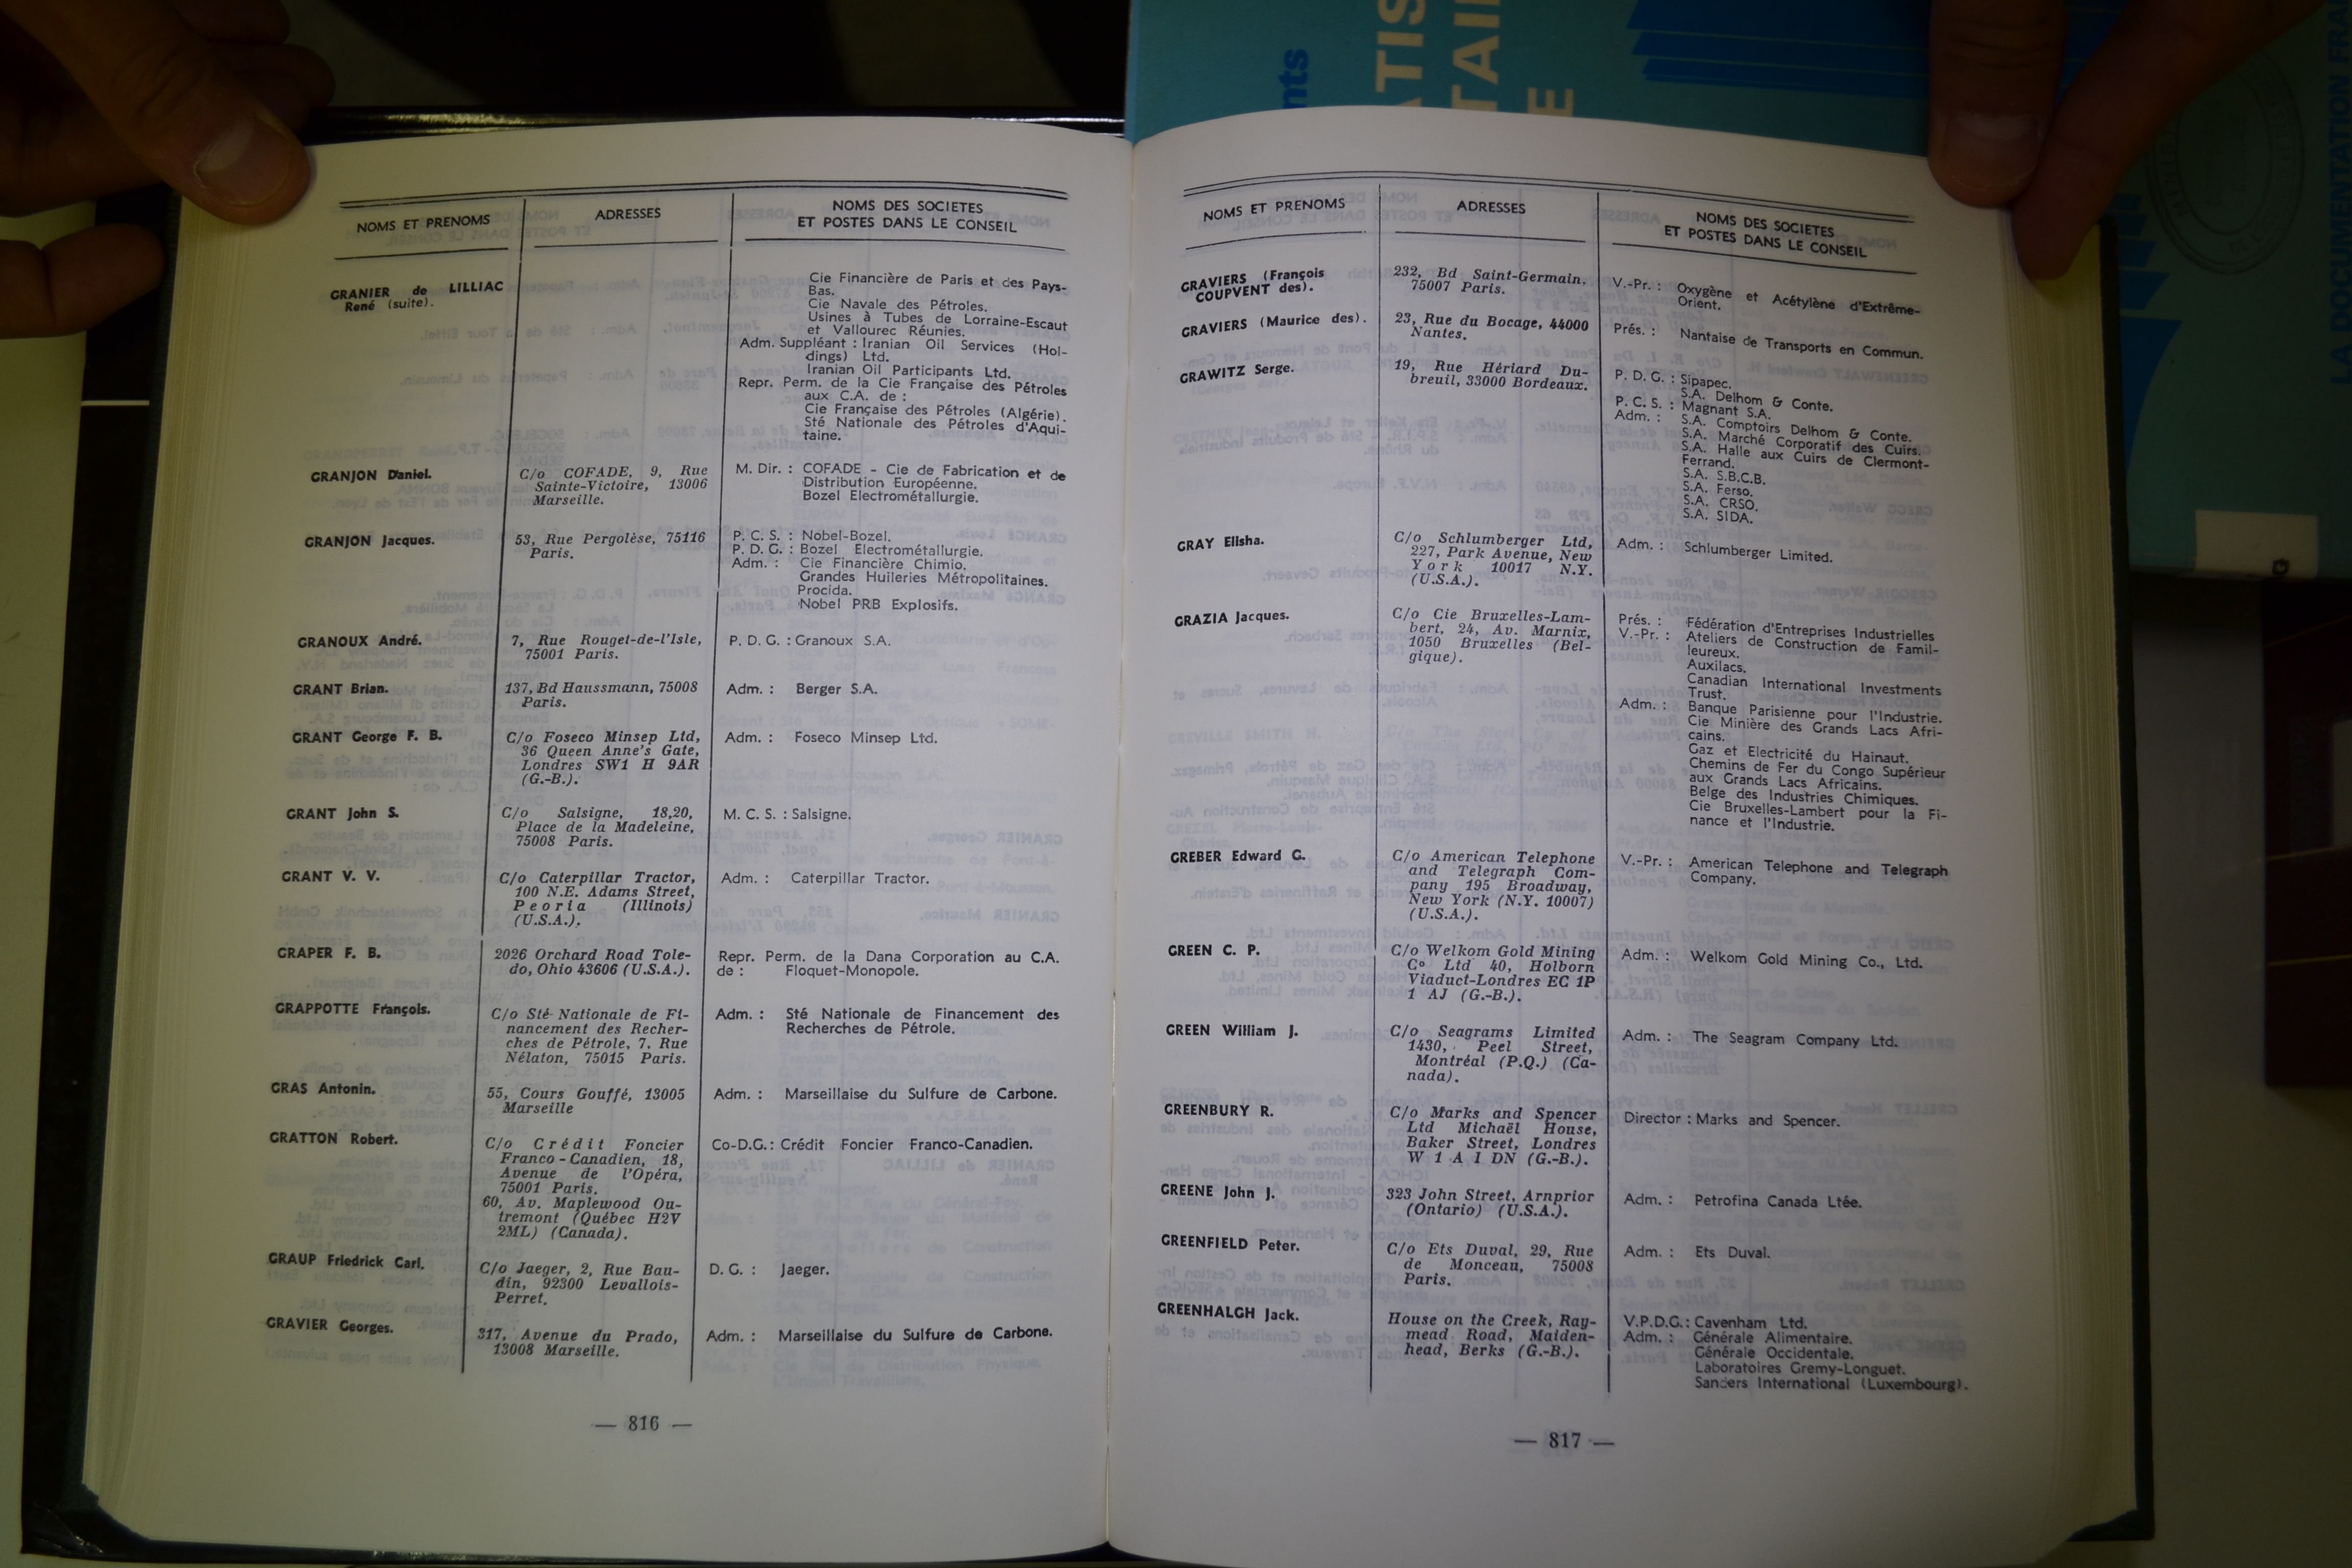 NOMS ET PRENOMS
ADRESSES
NOMS DES SOCIETES
ET POSTES DANS LE CONSEIL
GRANIER de LILLIAC
René (suite).
Cie Financière de Paris et des Pays-
Bas.
Cie Navale des Pétroles.
Usines à Tubes de Lorraine-Escaut
et Vallourec Réunies.
Adm. Suppléant : Iranian Oil Services (Hol-
dings) Ltd.
Iranian Oil Participants Ltd.
Repr. Perm. de la Cie Française des Pétroles
aux C.A. de :
Cie Française des Pétroles (Algérie).
Sté Nationale des Pétroles d'Aqui-
taine.
GRANJON Daniel.
C/o COFADE, 9, Rue
Sainte-Victoire, 13006
Marseille.
M. Dir. : COFADE - Cie de Fabrication et de
Distribution Européenne.
Bozel Electrométallurgie.
GRANJON Jacques.
53, Rue Pergolèse, 75116
Paris.
P. C. S. : Nobel-Bozel.
P. D. G. : Bozel Electrométallurgie.
Adm. : Cie Financière Chimio.
Grandes Huileries Métropolitaines.
Procida.
Nobel PRB Explosifs.
GRANOUX André.
7, Rue Rouget-de-l'Isle,
75001 Paris.
P. D. G. : Granoux S.A.
GRANT Brian.
137, Bd Haussmann, 75008
Paris.
Adm. : Berger S.A.
GRANT George F. B.
C/o Foseco Minsep Ltd,
36 Queen Anne's Gate,
Londres SW1 H 9AR
(G.-B.).
Adm. : Foseco Minsep Ltd.
GRANT John S.
C/o Salsigne, 18,20,
Place de la Madeleine,
75008 Paris.
M. C. S. : Salsigne.
GRANT V. V.
C/o Caterpillar Tractor,
100 N.E. Adams Street,
Peoria (Illinois)
(U.S.A.).
Adm. : Caterpillar Tractor.
GRAPER F. B.
2026 Orchard Road Tole-
do, Ohio 43606 (U.S.A.).
Repr. Perm. de la Dana Corporation au C.A.
de : Floquet-Monopole.
GRAPPOTTE François.
C/o Sté Nationale de Fi-
nancement des Recher-
ches de Pétrole, 7, Rue
Nélaton, 75015 Paris.
Adm. : Sté Nationale de Financement des
Recherches de Pétrole.
GRAS Antonin.
55, Cours Gouffé, 13005
Marseille
Adm. : Marseillaise du Sulfure de Carbone.
GRATTON Robert.
C/o Crédit Foncier
Franco-Canadien, 18,
Avenue de l'Opéra,
75001 Paris.
60, Av. Maplewood Ou-
tremont (Québec H2V
2ML) (Canada).
Co-D.G. : Crédit Foncier Franco-Canadien.
GRAUP Friedrick Carl.
C/o Jaeger, 2, Rue Bau-
din, 92300 Levallois-
Perret.
D. G. : Jaeger.
GRAVIER Georges.
317, Avenue du Prado,
13008 Marseille.
Adm. : Marseillaise du Sulfure de Carbone.
— 816 —
NOMS ET PRENOMS
ADRESSES
NOMS DES SOCIETES
ET POSTES DANS LE CONSEIL
GRAVIERS (François
COUPVENT des).
232, Bd Saint-Germain,
75007 Paris.
V.-Pr. : Oxygène et Acétylène d'Extrême-
Orient.
GRAVIERS (Maurice des).
23, Rue du Bocage, 44000
Nantes.
Prés. : Nantaise de Transports en Commun.
GRAWITZ Serge.
19, Rue Hériard Du-
breuil, 33000 Bordeaux.
P. D. G. : Sipapec.
S.A. Delhom & Conte.
P. C. S. : Magnant S.A.
Adm. : S.A. Comptoirs Delhom & Conte.
S.A. Marché Corporatif des Cuirs.
S.A. Halle aux Cuirs de Clermont-
Ferrand.
S.A. S.B.C.B.
S.A. Ferso.
S.A. CRSO.
S.A. SIDA.
GRAY Elisha.
C/o Schlumberger Ltd,
227, Park Avenue, New
York 10017 N.Y.
(U.S.A.).
Adm. : Schlumberger Limited.
GRAZIA Jacques.
C/o Cie Bruxelles-Lam-
bert, 24, Av. Marnix,
1050 Bruxelles (Bel-
gique).
Prés. : Fédération d'Entreprises Industrielles
V.-Pr. : Ateliers de Construction de Famil-
leureux.
Auxilacs.
Canadian International Investments
Trust.
Adm. : Banque Parisienne pour l'Industrie.
Cie Minière des Grands Lacs Afri-
cains.
Gaz et Electricité du Hainaut.
Chemins de Fer du Congo Supérieur
aux Grands Lacs Africains.
Belge des Industries Chimiques.
Cie Bruxelles-Lambert pour la Fi-
nance et l'Industrie.
GREBER Edward G.
C/o American Telephone
and Telegraph Com-
pany 195 Broadway,
New York (N.Y. 10007)
(U.S.A.).
V.-Pr. : American Telephone and Telegraph
Company.
GREEN C. P.
C/o Welkom Gold Mining
C° Ltd 40, Holborn
Viaduct-Londres EC 1P
1 AJ (G.-B.).
Adm. : Welkom Gold Mining Co., Ltd.
GREEN William J.
C/o Seagrams Limited
1430, Peel Street,
Montréal (P.Q.) (Ca-
nada).
Adm. : The Seagram Company Ltd.
GREENBURY R.
C/o Marks and Spencer
Ltd Michaël House,
Baker Street, Londres
W 1 A I DN (G.-B.).
Director : Marks and Spencer.
GREENE John J.
323 John Street, Arnprior
(Ontario) (U.S.A.).
Adm. : Petrofina Canada Ltée.
GREENFIELD Peter.
C/o Ets Duval, 29, Rue
de Monceau, 75008
Paris.
Adm. : Ets Duval.
GREENHALGH Jack.
House on the Creek, Ray-
mead Road, Maiden-
head, Berks (G.-B.).
V.P.D.G. : Cavenham Ltd.
Adm. : Générale Alimentaire.
Générale Occidentale.
Laboratoires Gremy-Longuet.
Sanders International (Luxembourg).
— 817 —